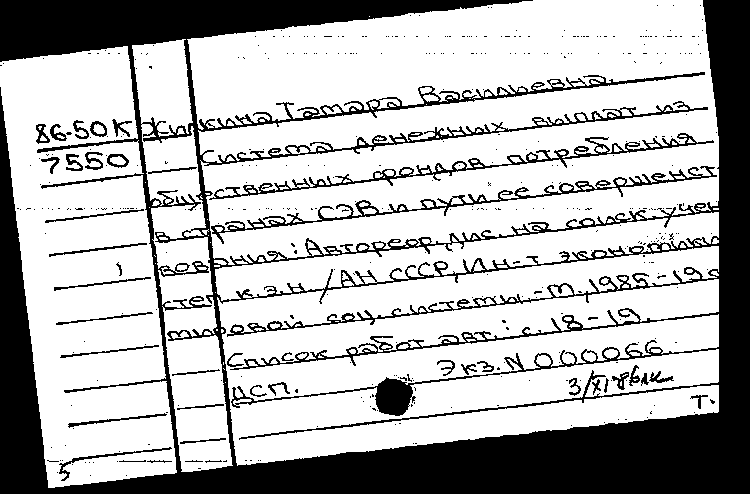 86-50К Жилкина, Тамара Васильевна.
7550 Система денежных выплат из
общественных фондов потребления
в странах СЭВ и пути ее совершенст
вования: Автореф. дис. на соиск. учен
степ. к.э.н. / АН СССР, Ин-т экономики
мировой соц. системы.-М., 1985.-19 с
Список работ авт.: с. 18-19.
ДСП. Экз. N 000066.
3/XI-86
Т.
5